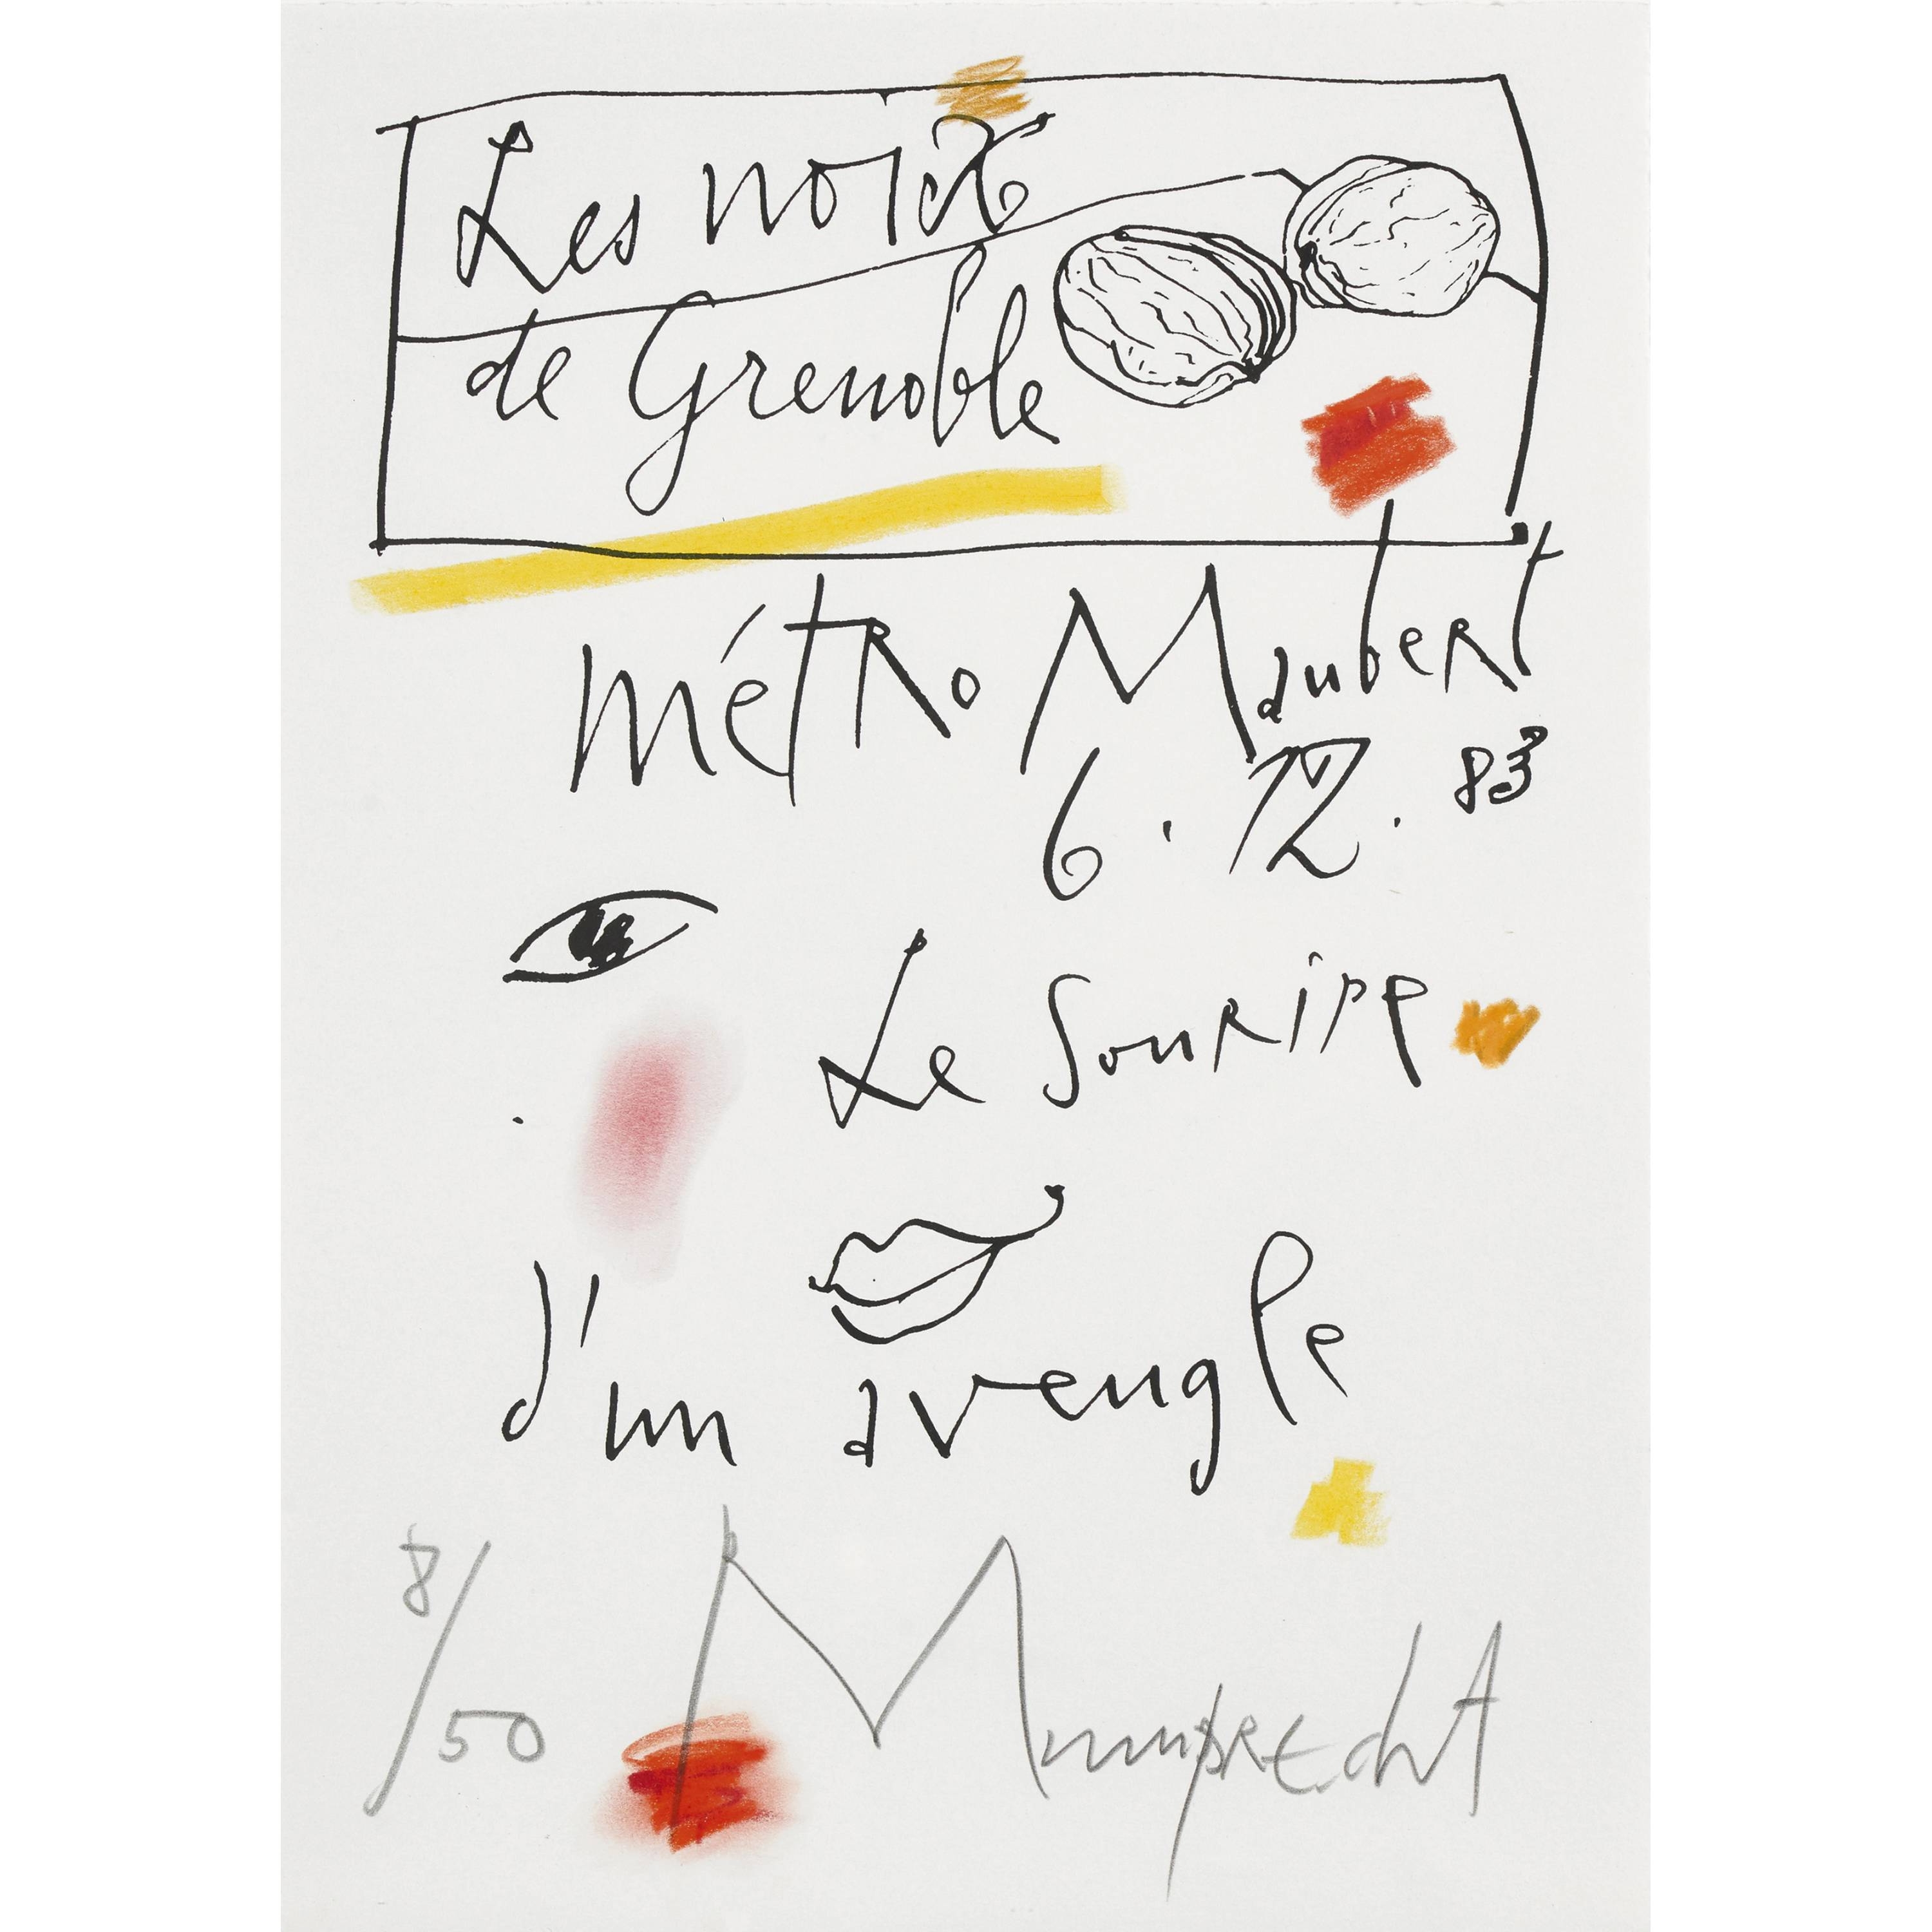 Les noix
de Grenoble
métro Maubert
6.12.83
Le Sourire
d'un aveugle
8/50